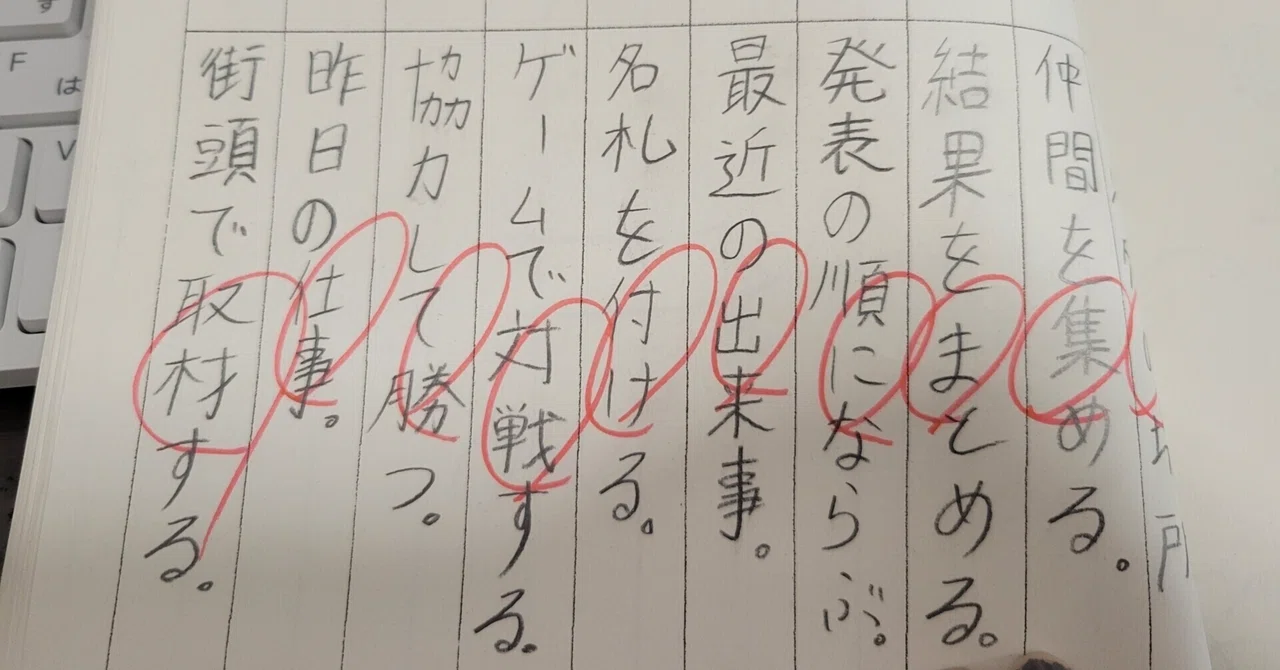 仲間を集める。
結果をまとめる。
発表の順にならぶ。
最近の出来事。
名札を付ける。
ゲームで対戦する。
協力して勝つ。
昨日の仕事。
街頭で取材する。
F
は
V
す